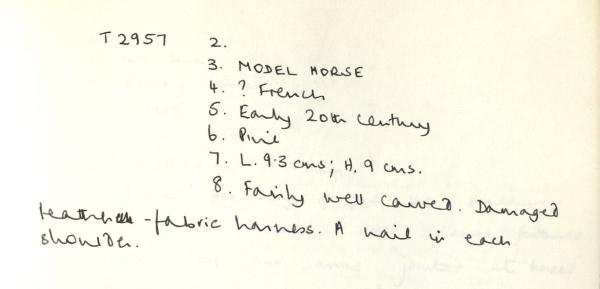 T 2957 2.
3. MODEL HORSE
4. ? French
5. Early 20th Century
6. Pine
7. L. 9.3 cms; H. 9 cms.
8. Fairly well carved. Damaged
- fabric harness. A nail in each
shoulder.